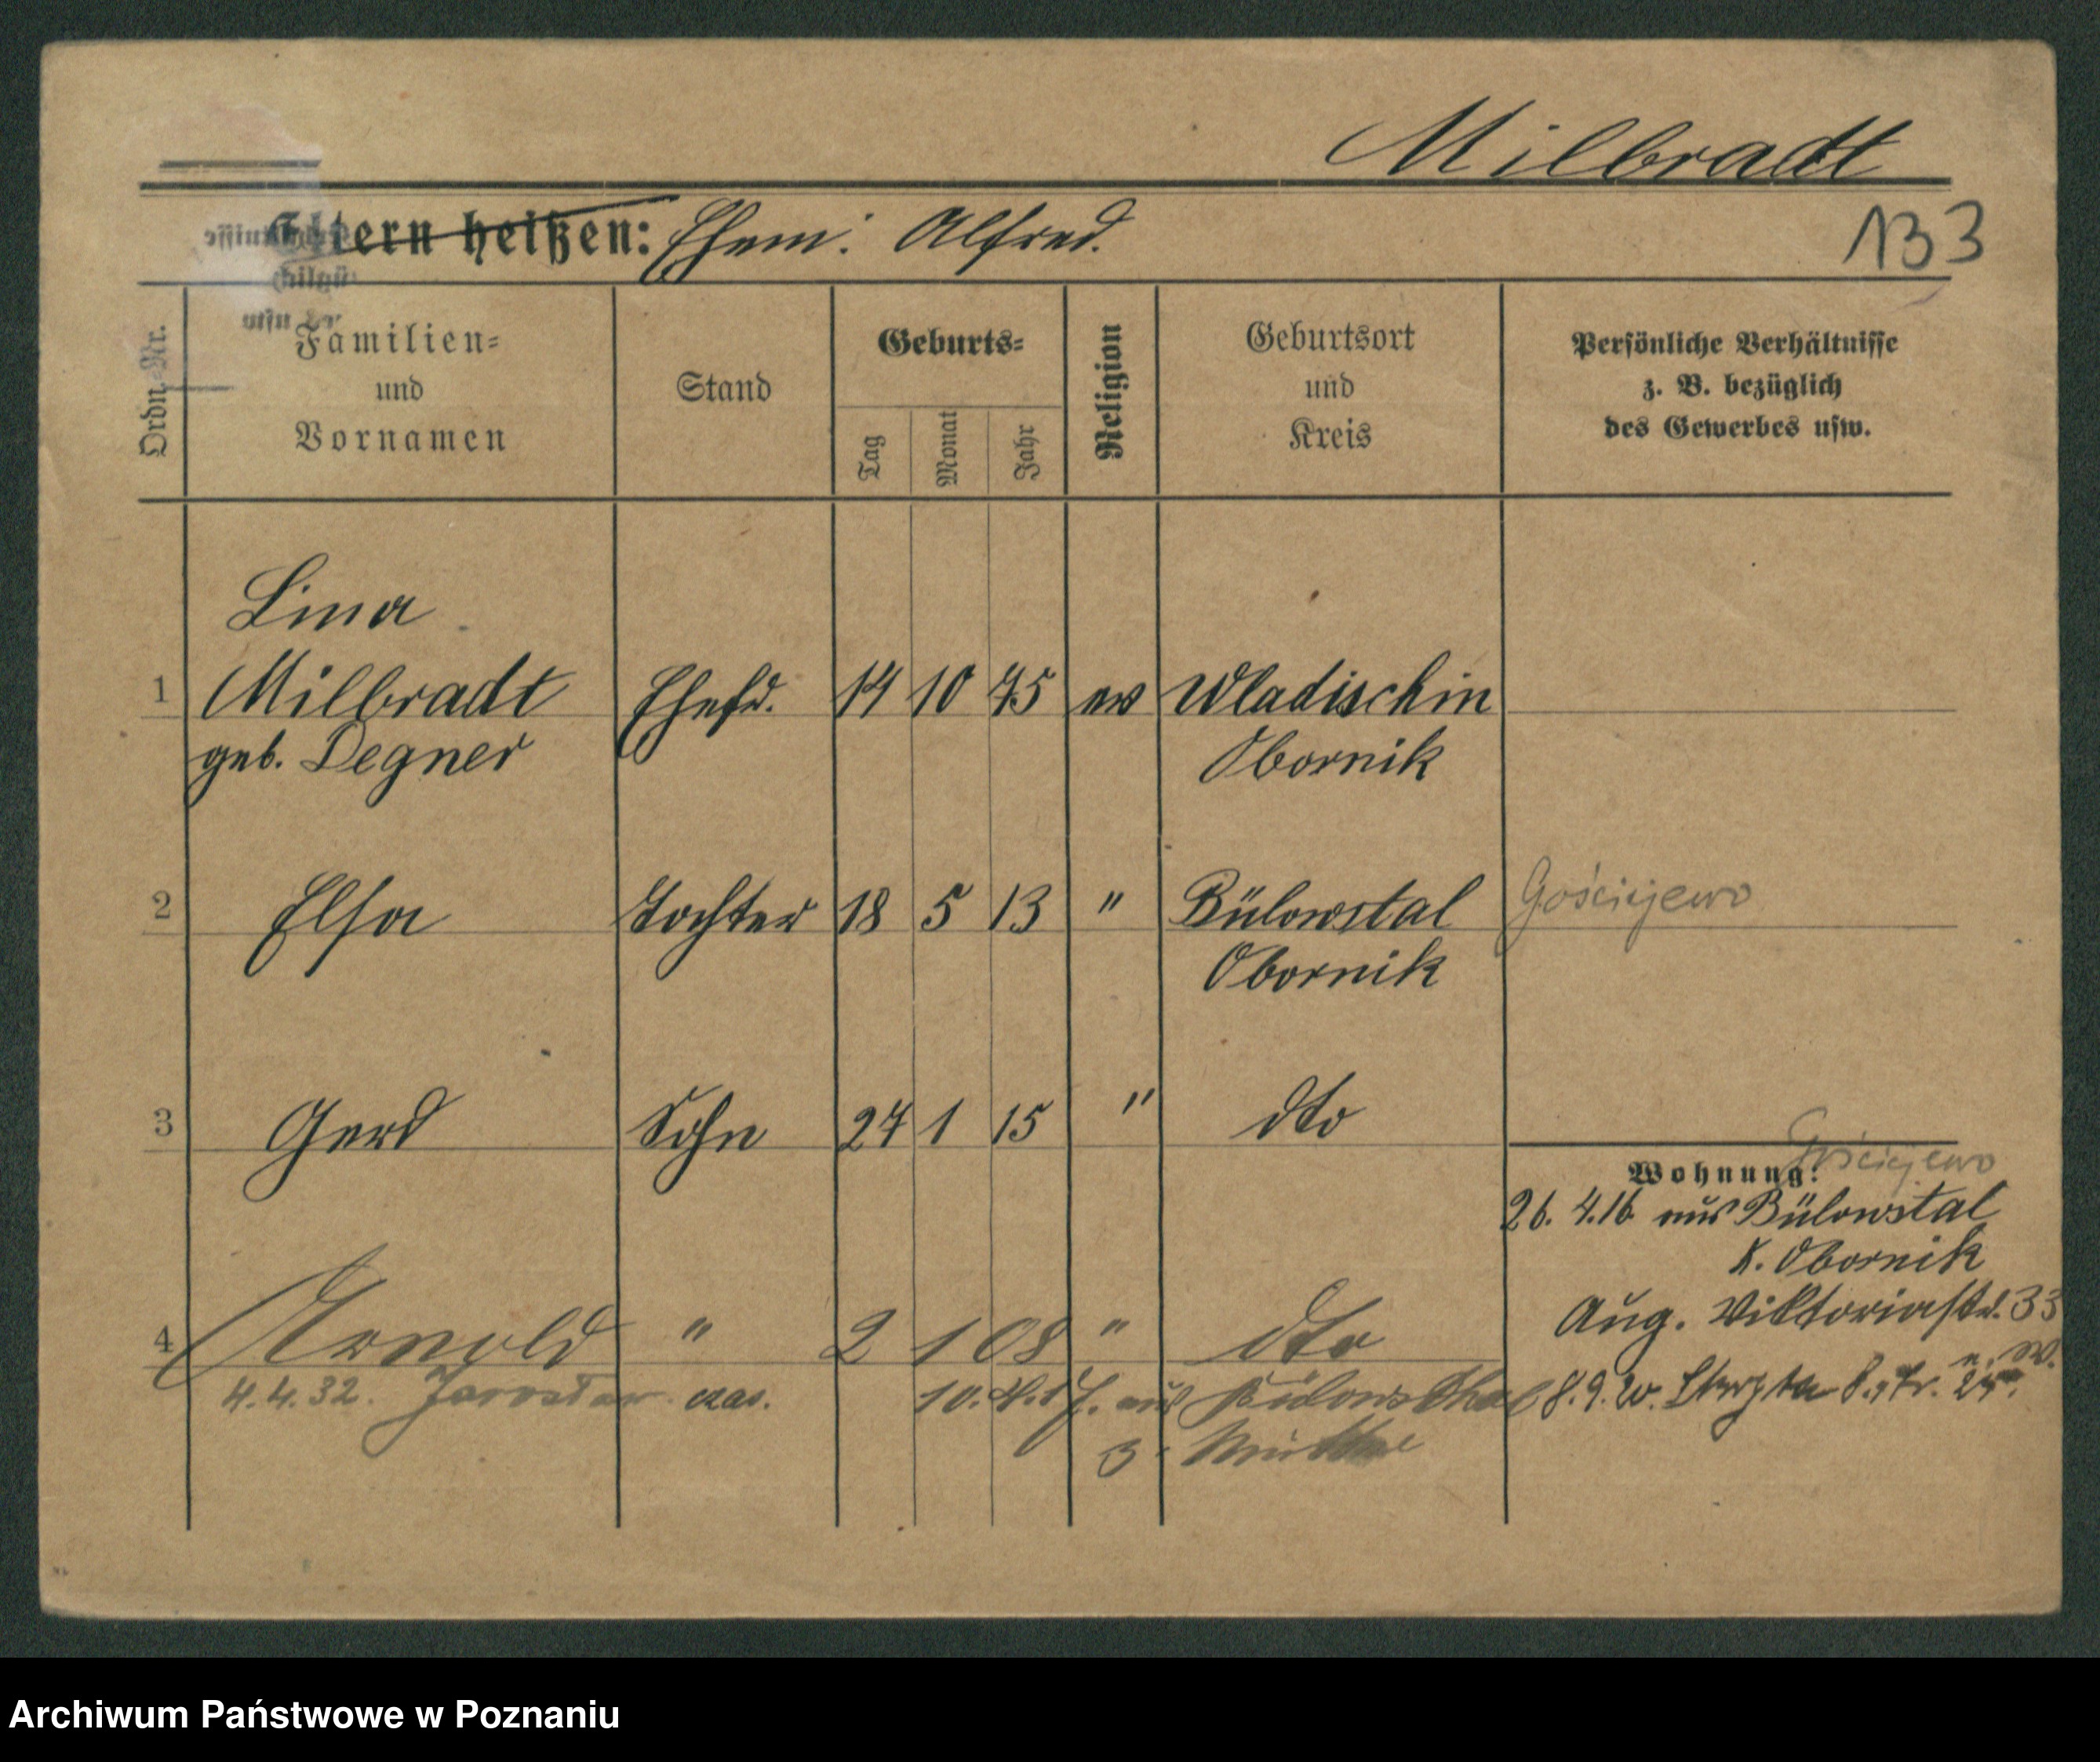 Milbradt
Eltern heißen: Ehem: Alfred.
133
Ordn.-Nr.
Familien-
und
Vornamen
Stand
Geburts-
Tag
Monat
Jahr
Religion
Geburtsort
und
Kreis
Persönliche Verhältnisse
z. B. bezüglich
des Gewerbes usw.
Lina
1 Milbradt Ehefr. 14 10 75 ev Wladischin
geb. Degner Obornik
2 Elsa Tochter 18 5 13 " Bülowstal Gościejewo
Obornik
3 Gerd Sohn 27 1 15 " dto
Wohnung: Gościejewo
26. 4. 16 aus Bülowstal
K. Obornik
Aug. Viktoriastr. 33
4 Arnold " 2 1 08 " dto
4.4.32. Jarosław czas. 10. 17. aus Bülowsthal
8.9.20.
z. Mutter
Archiwum Państwowe w Poznaniu